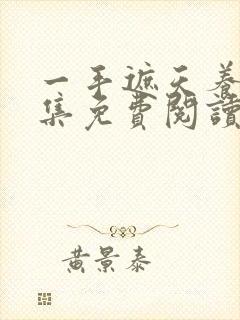 一手遮天養
集免費閱讀
黃景泰